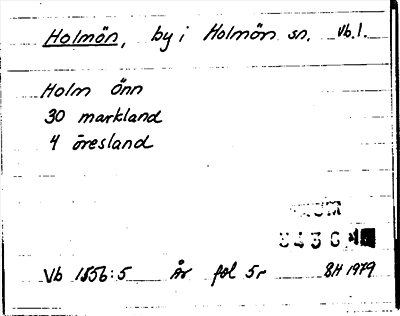 Holmön, by i Holmön sn. Vb.l.
Holm Önn
30 markland
4 öresland
Vb 1556:5 År fol 5r BH 1979